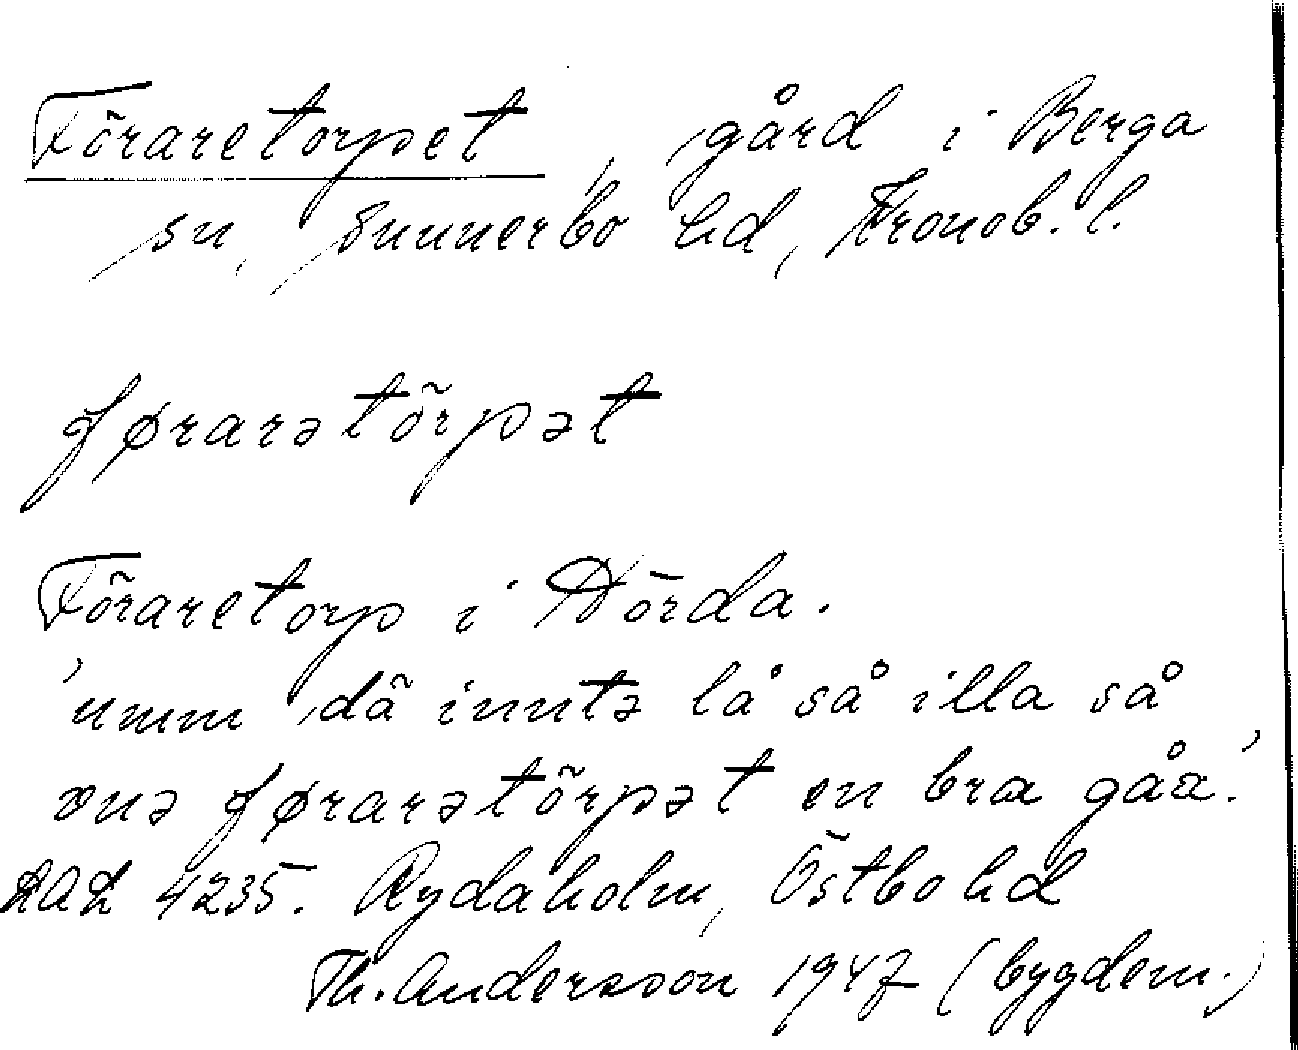 Föraretorpet, gård i Berga
sn, Sunnerbo hd, Kronob. l.
førarətörpət
Föraretorp i Dörda.
'umm dä inntə lå så illa så
vnə førarətörpət en bra gåa.'
LAL 4235. Rydaholm, Östbo hd
Th. Andersson 1947 (bygdem.)